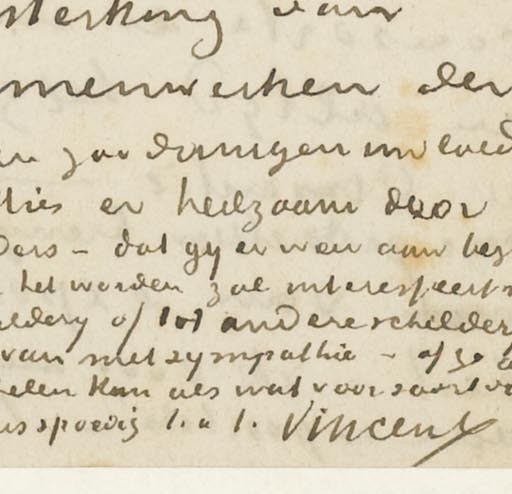 sterking van
menwerken der
en zoodanigen invloed
tlies er heilzaam door
Ders – dat gy er weer aan beg
het worden zal interesseert
eldery of tot andere schilder
van met sympathie – of ge
elen kan als wat voor soort v
us spoedig t. à t. Vincent